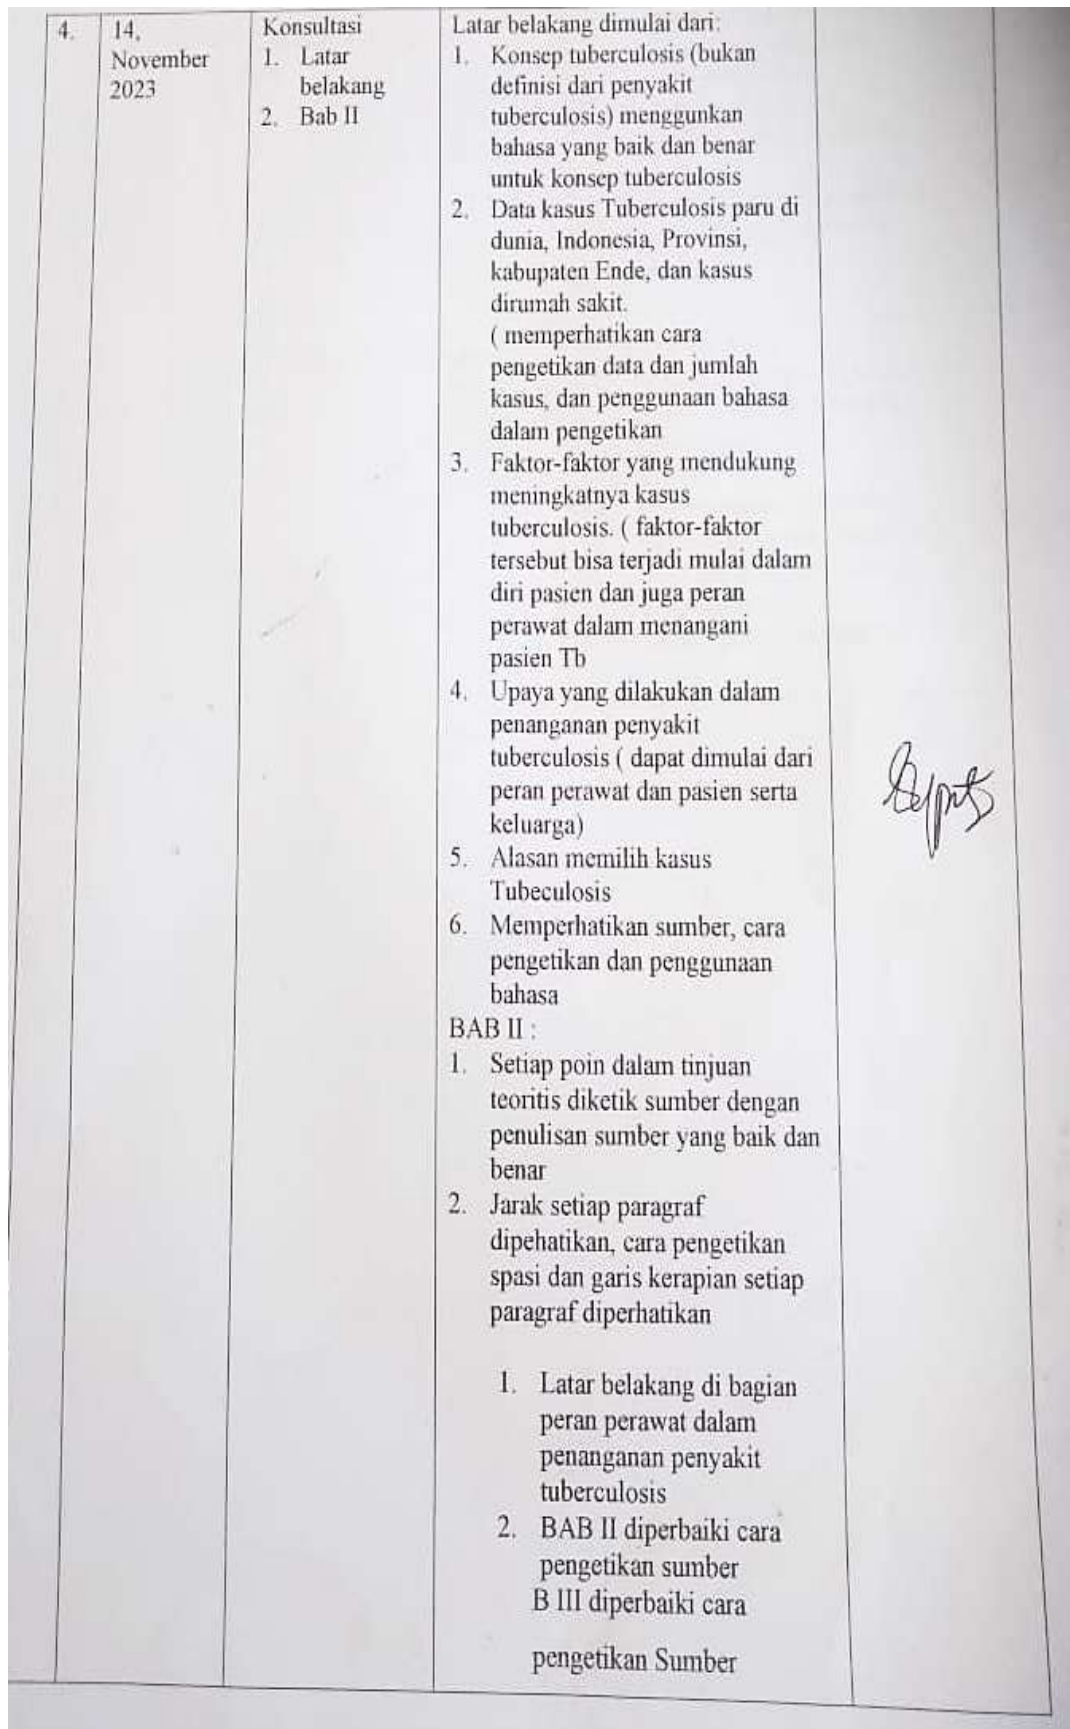 4.
14,
November
2023
Konsultasi
1. Latar
belakang
2. Bab II
Latar belakang dimulai dari:
1. Konsep tuberculosis (bukan
definisi dari penyakit
tuberculosis) menggunkan
bahasa yang baik dan benar
untuk konsep tuberculosis
2. Data kasus Tuberculosis paru di
dunia, Indonesia, Provinsi,
kabupaten Ende, dan kasus
dirumah sakit.
( memperhatikan cara
pengetikan data dan jumlah
kasus, dan penggunaan bahasa
dalam pengetikan
3. Faktor-faktor yang mendukung
meningkatnya kasus
tuberculosis. ( faktor-faktor
tersebut bisa terjadi mulai dalam
diri pasien dan juga peran
perawat dalam menangani
pasien Tb
4. Upaya yang dilakukan dalam
penanganan penyakit
tuberculosis ( dapat dimulai dari
peran perawat dan pasien serta
keluarga)
5. Alasan memilih kasus
Tubeculosis
6. Memperhatikan sumber, cara
pengetikan dan penggunaan
bahasa
BAB II :
1. Setiap poin dalam tinjuan
teoritis diketik sumber dengan
penulisan sumber yang baik dan
benar
2. Jarak setiap paragraf
dipehatikan, cara pengetikan
spasi dan garis kerapian setiap
paragraf diperhatikan
1. Latar belakang di bagian
peran perawat dalam
penanganan penyakit
tuberculosis
2. BAB II diperbaiki cara
pengetikan sumber
B III diperbaiki cara
pengetikan Sumber